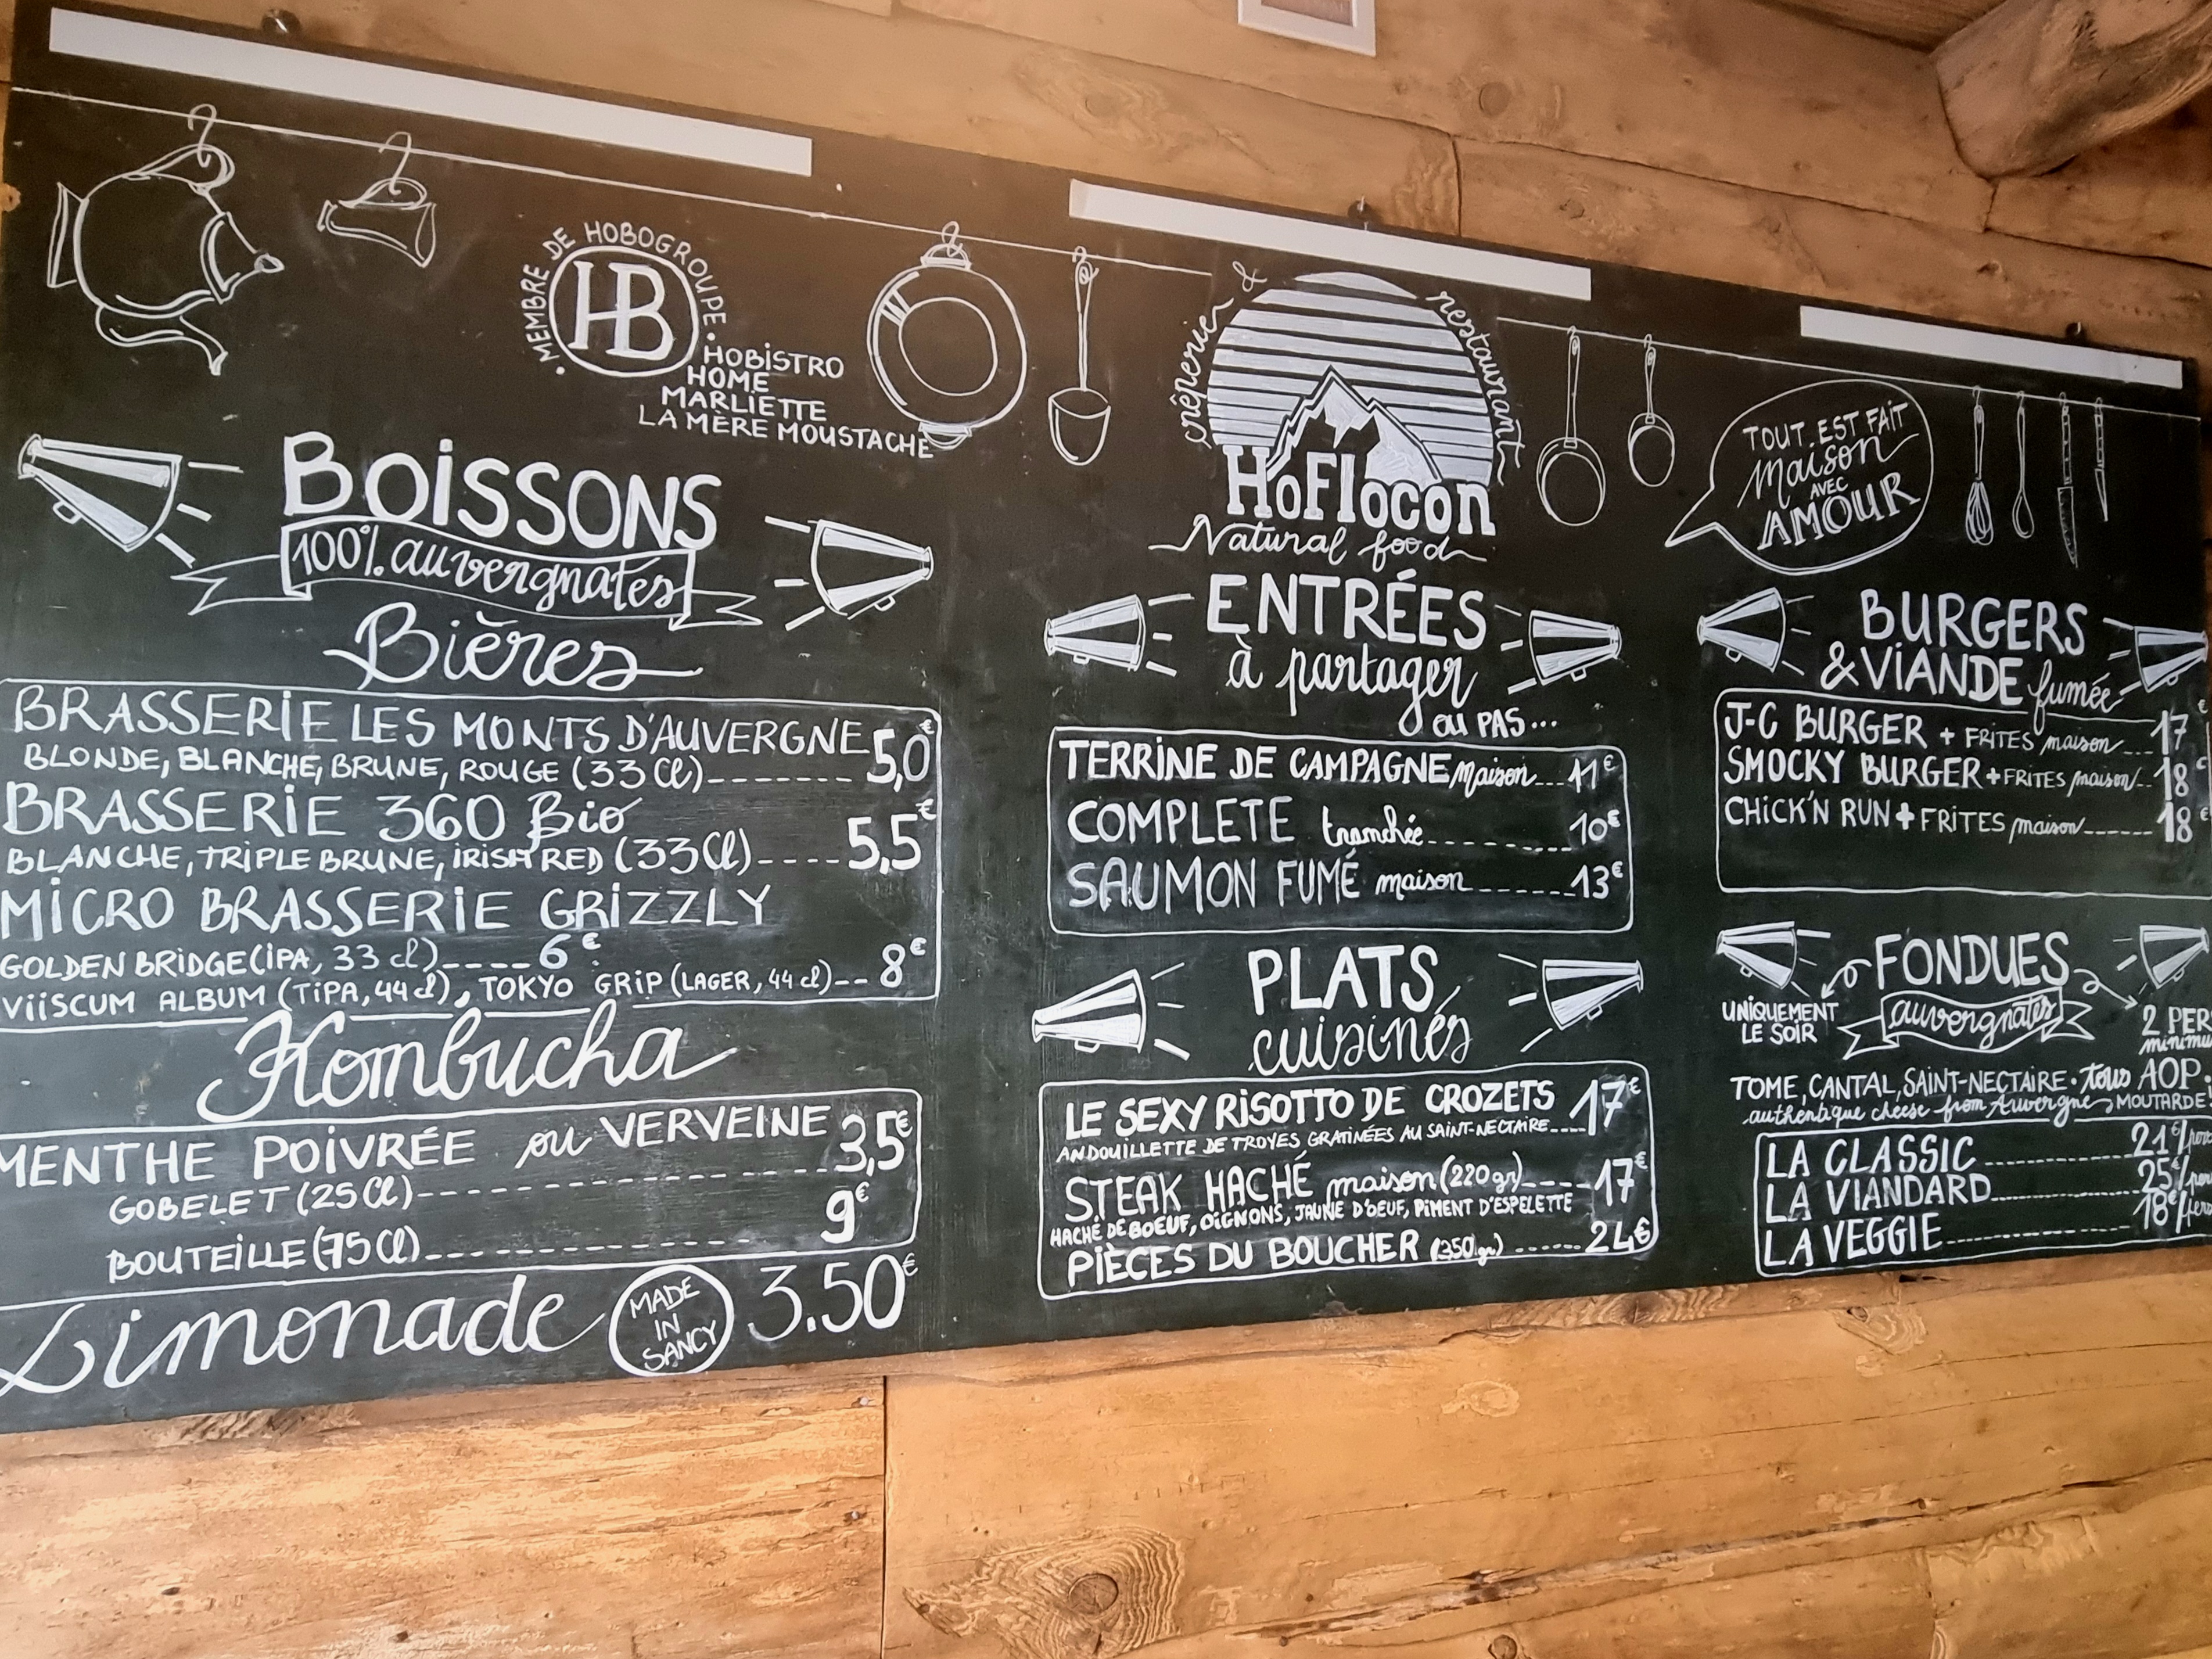 MEMBRE DE HOBOGROUPE
HB
HOBISTRO
HOME
MARLIETTE
LA MÈRE MOUSTACHE
BOISSONS
100% auvergnates
Bières
BRASSERIE LES MONTS D'AUVERGNE
BLONDE, BLANCHE, BRUNE, ROUGE (33 Cl)------- 5,0€
BRASSERIE 360 Bio
BLANCHE, TRIPLE BRUNE, IRISH RED (33 Cl)---- 5,5€
MICRO BRASSERIE GRIZZLY
GOLDEN BRIDGE (IPA, 33 cl)____ 6€
VIISCUM ALBUM (TIPA, 44 cl), TOKYO GRIP (LAGER, 44 cl)-- 8€
Kombucha
MENTHE POIVRÉE ou VERVEINE
GOBELET (25 Cl)------- 3,5€
BOUTEILLE (75 Cl)------- 9€
Limonade MADE IN SANCY 3.50€
crêperie & restaurant
HoFlocon
Natural food
ENTRÉES
à partager
ou PAS...
TERRINE DE CAMPAGNE maison--- 11€
COMPLETE tranchée------- 10€
SAUMON FUMÉ maison------ 13€
PLATS
cuisinés
LE SEXY RISOTTO DE CROZETS 17€
ANDOUILLETTE DE TROYES GRATINÉES AU SAINT-NECTAIRE----
STEAK HACHÉ maison (220 gr)---- 17€
HACHÉ DE BOEUF, OIGNONS, JAUNE D'OEUF, PIMENT D'ESPELETTE
PIÈCES DU BOUCHER (350 gr) ------ 24€
TOUT EST FAIT
maison
AVEC
AMOUR
BURGERS
& VIANDE fumée
J-C BURGER + FRITES maison--- 17€
SMOCKY BURGER + FRITES maison-- 18€
CHICK'N RUN + FRITES maison------ 18€
FONDUES
auvergnates
UNIQUEMENT
LE SOIR
2 PER
minimu
TOME, CANTAL, SAINT-NECTAIRE • tous AOP.
authentique cheese from Auvergne MOUTARDE
LA CLASSIC------- 21€/pers
LA VIANDARD------- 25€/pers
LA VEGGIE------- 18€/pers